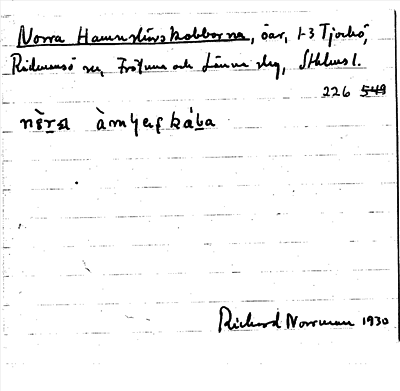 Norra Hamnskärskobbarna, öar, 1-3 Tjockö,
Ridmansö sn, Frötuna och Länna slg, Sthlms l.
226 549
Richard Norrman 1930